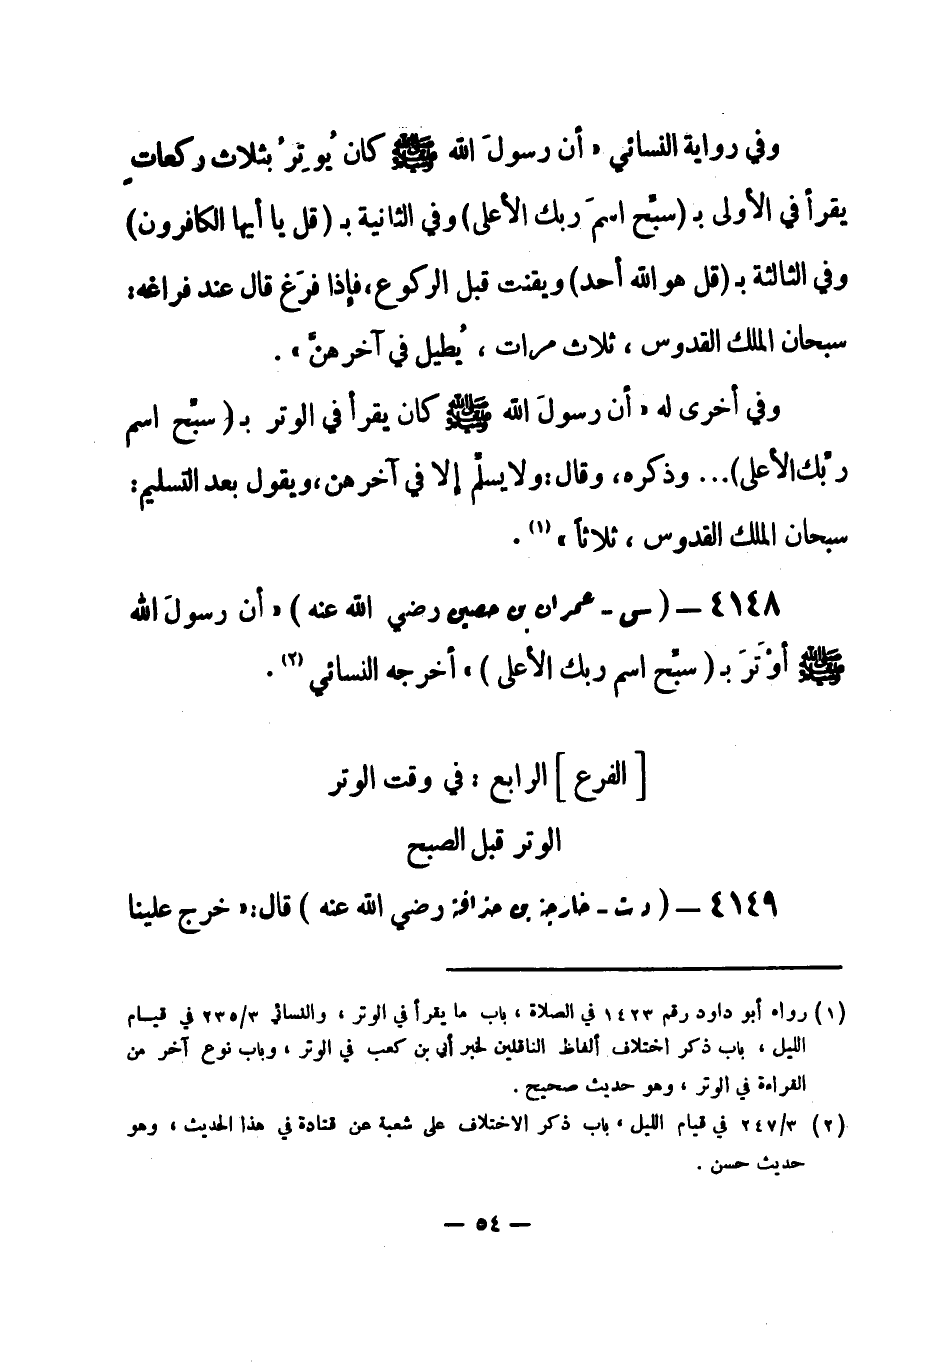 وفي رواية النسائي « أن رسولَ الله ﷺ كان يُوتِرُ بثلاث ركعاتٍ
يقرأ في الأولى بـ (سبِّح اسمَ ربك الأعلى) وفي الثانية بـ (قل يا أيها الكافرون)
وفي الثالثة بـ (قل هو الله أحد) ويقنت قبل الركوع ، فإذا فرَغ قال عند فراغه:
سبحان الملك القدوس ، ثلاث مرات ، يُطيل في آخرهنَّ » .
وفي أخرى له « أن رسولَ الله ﷺ كان يقرأ في الوتر بـ ( سبِّح اسم
ربِّك الأعلى) ... وذكره ، وقال : ولا يسلِّم إلا في آخرهن ، ويقول بعد التسليم :
سبحان الملك القدوس ، ثلاثاً » (١) .
٤١٤٨ – ( س - عمران بن حصين رضي الله عنه ) « أن رسولَ الله
ﷺ أوْتَرَ بـ ( سبِّح اسم ربك الأعلى ) » أخرجه النسائي (٢) .
[ الفرع ] الرابع : في وقت الوتر
الوتر قبل الصبح
٤١٤٩ – ( د ت - خارجة بن حذافة رضي الله عنه ) قال : « خرج علينا
(١) رواه أبو داود رقم ١٤٢٣ في الصلاة ، باب ما يقرأ في الوتر ، والنسائي ٢٣٥/٣ في قيام
الليل ، باب ذكر اختلاف ألفاظ الناقلين لخبر أبي بن كعب في الوتر ، وباب نوع آخر من
القراءة في الوتر ، وهو حديث صحيح .
(٢) ٢٤٧/٣ في قيام الليل ، باب ذكر الاختلاف على شعبة عن قتادة في هذا الحديث ، وهو
حديث حسن .
– ٥٤ –